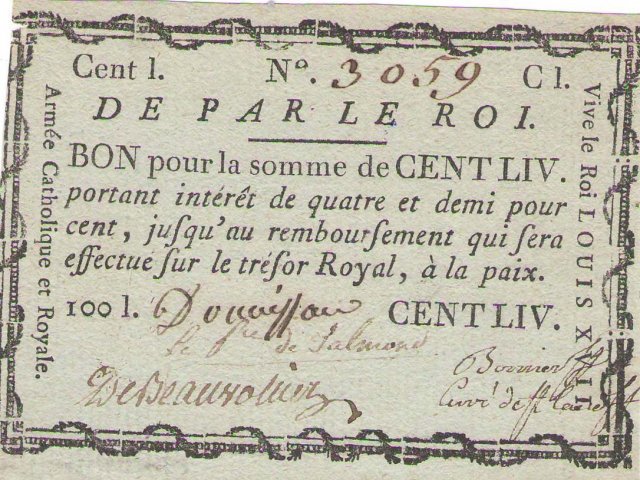 Cent l. Nº. 3059 C l.
DE PAR LE ROI.
BON pour la somme de CENT LIV.
portant intérêt de quatre et demi pour
cent, jusqu'au rembourſement qui ſera
effectué ſur le tréſor Royal, à la paix.
100 l. Donnissan CENT LIV.
de Talmond
DeBeauvollier
Armée Catholique et Royale.
Vive le Roi LOUIS XVII